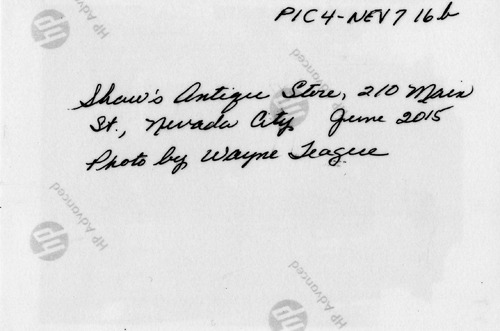 PIC4-NEV716b
Shaw's Antique Store, 210 Main
St., Nevada City June 2015
Photo by Wayne Teague
hp HP Advanced
HP Advanced
hp HP Advanced
hp HP Advanced